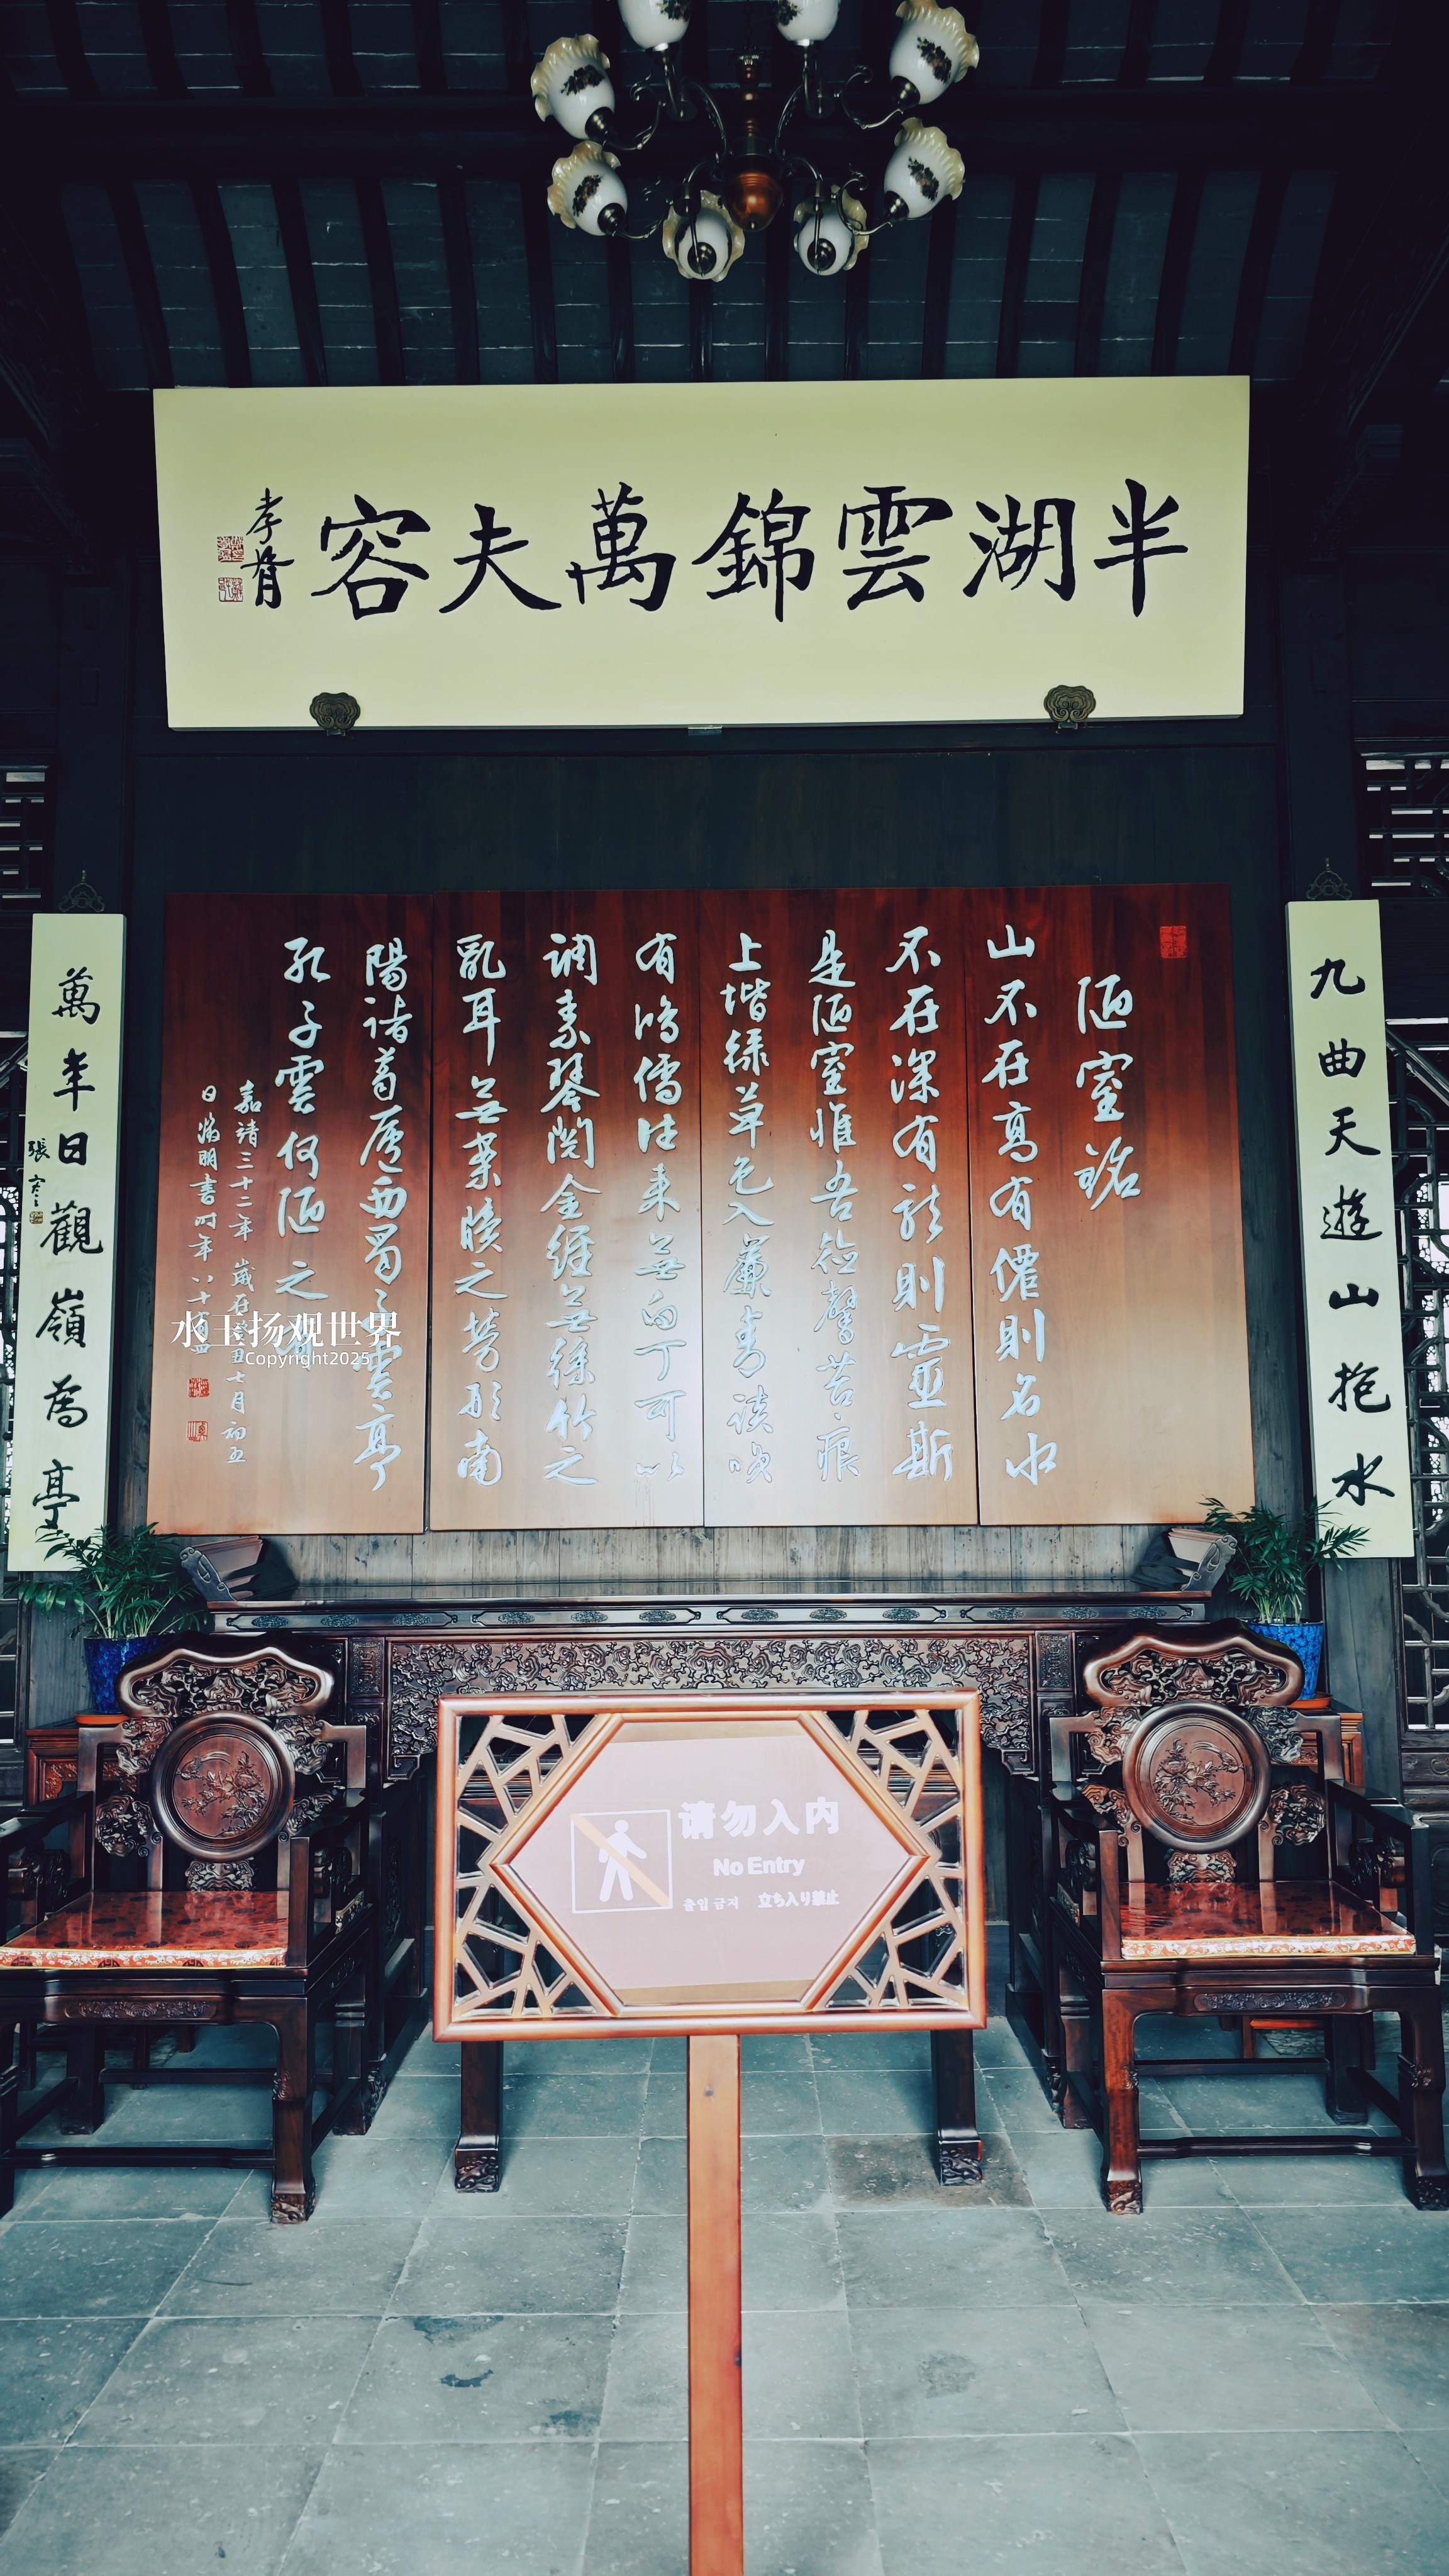 半湖雲錦萬夫容
九曲天遊山抱水
萬年日觀嶺為亭
張
陋室銘
山不在高有僊則名水
不在深有龍則靈斯
是陋室惟吾德馨苔痕
上堦綠草色入簾青談笑
有鴻儒往来無白丁可以
调素琴閱金經無絲竹之
亂耳無案牘之勞形南
陽诸葛廬西蜀子雲亭
孔子雲何陋之
嘉靖三十二年歲在癸丑七月初五
日徵明書时年八十四
水王扬观世界
Copyright2025
请勿入内
No Entry
출입 금지 立ち入り禁止